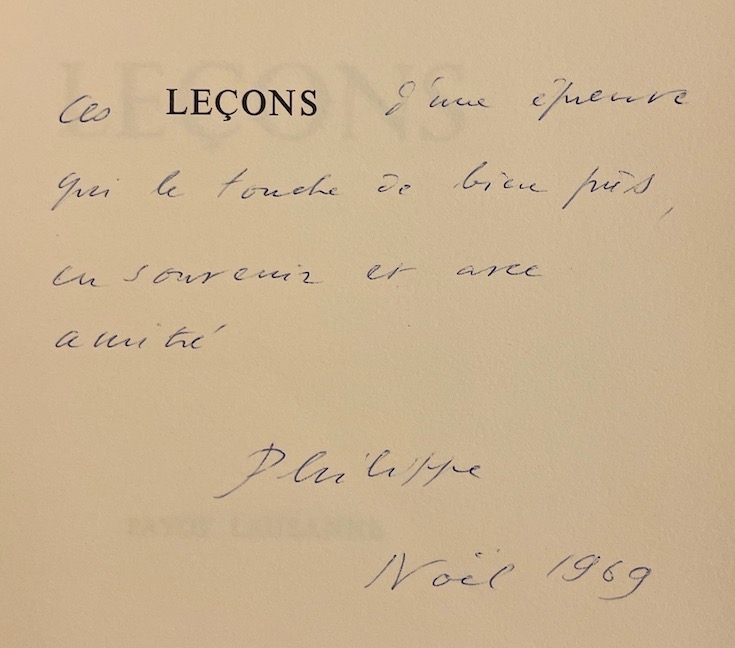 Ces LEÇONS d'une épreuve
qui le touche de bien près,
en souvenir et avec
amitié
Philippe
Noël 1969
PAYOT LAUSANNE